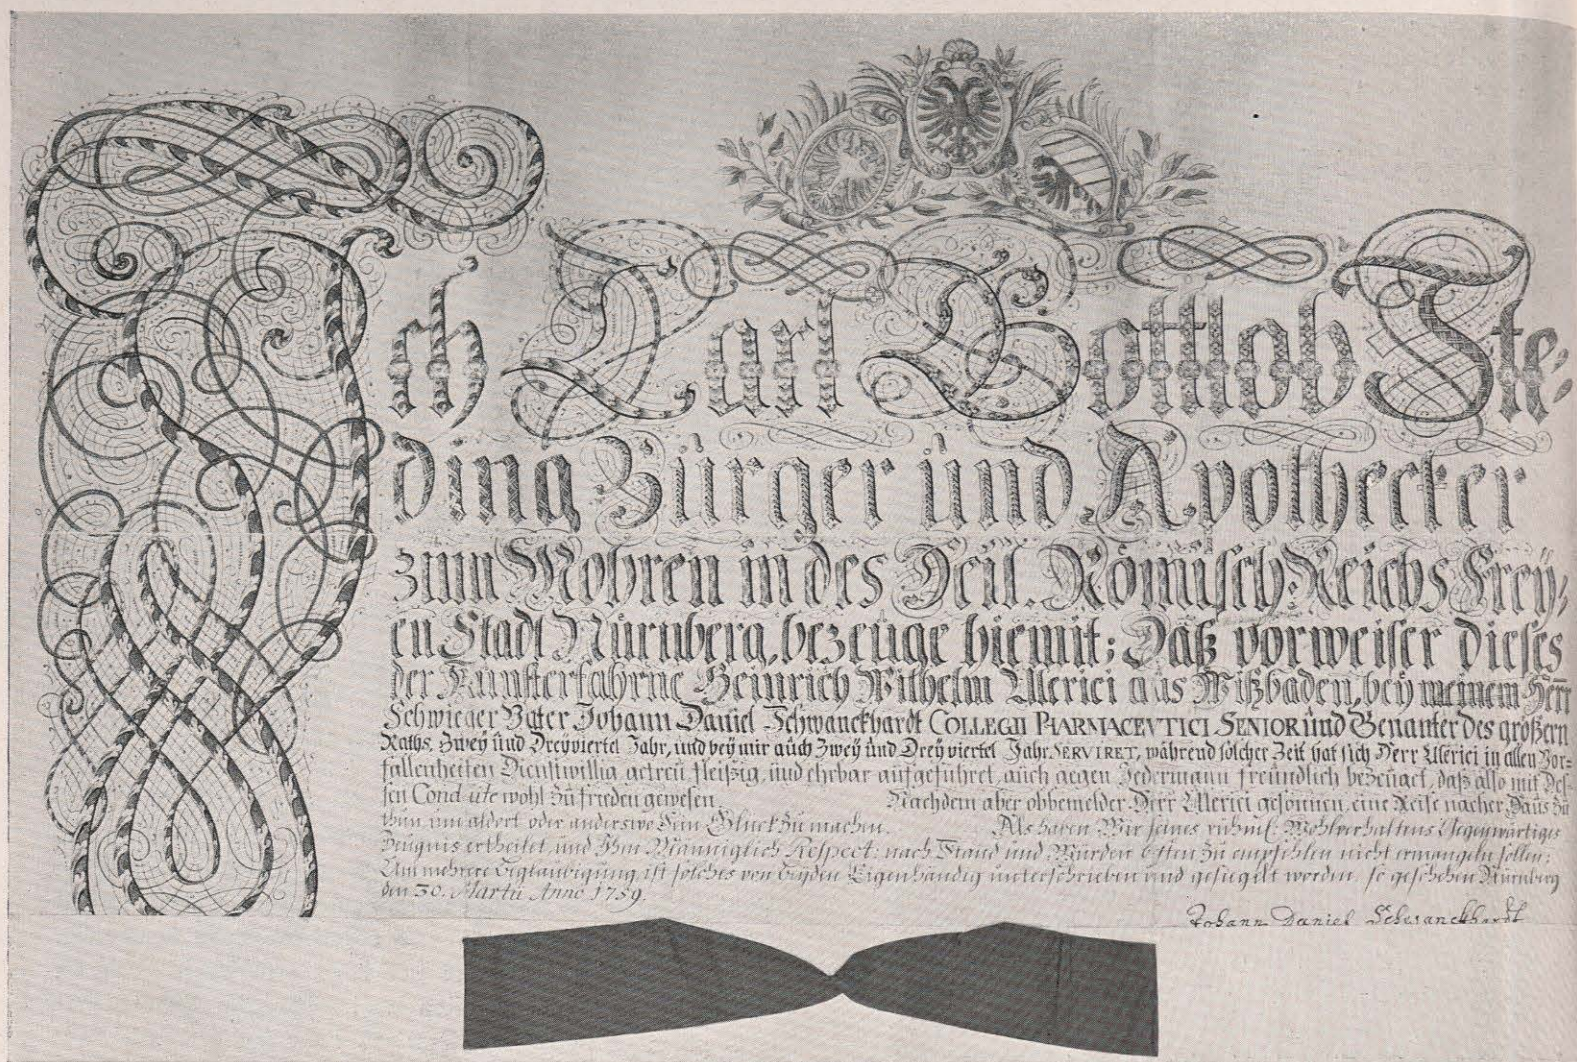 Ich Carl Gottlob Ste-
ding Bürger und Apothecker
zum Mohren in des Heil. Römisch: Reichs Frey-
en Stadt Nürnberg, bezeuge hiemit; Daß vorweiser dieses
der Kunsterfahrne Heinrich Wilhelm Ulerici aus Wißbaden, bey meinem Herr
Schwieger Vater Johann Daniel Schwanckhardt COLLEGII PHARMACEVTICI SENIOR und Genanter des größern
Raths, Zwey und Dreyviertel Jahr, und bey mir auch Zwey und Dreyviertel Jahr SERVIRET, während solcher Zeit hat sich Herr Ulerici in allen Vor-
fallenheiten Dienstwillig, getreu, fleißig, und ehrbar aufgeführet, auch gegen Jedermann freundlich bezeuget, daß also mit Des-
sen Conduite wohl zu frieden gewesen. Nachdem aber obbemelder Herr Ulerici gesonnen, eine Reise nacher Haus zu
thun um aldort oder anderswo sein Glück zu machen. Als haben Wir seines rühml: Wohlverhaltens Gegenwärtiges
Zeugnis ertheilet, und Ihm Männiglich Respect: nach Stand und Würden bestens zu empfehlen nicht ermangeln sollen;
Um mehrere Beglaubigung ist solches von beyden Eigenhändig unterschrieben und gesiegelt worden, so geschehen Nürnberg
den 30. Martii Anno 1759.
Johann Daniel Schwanckhardt